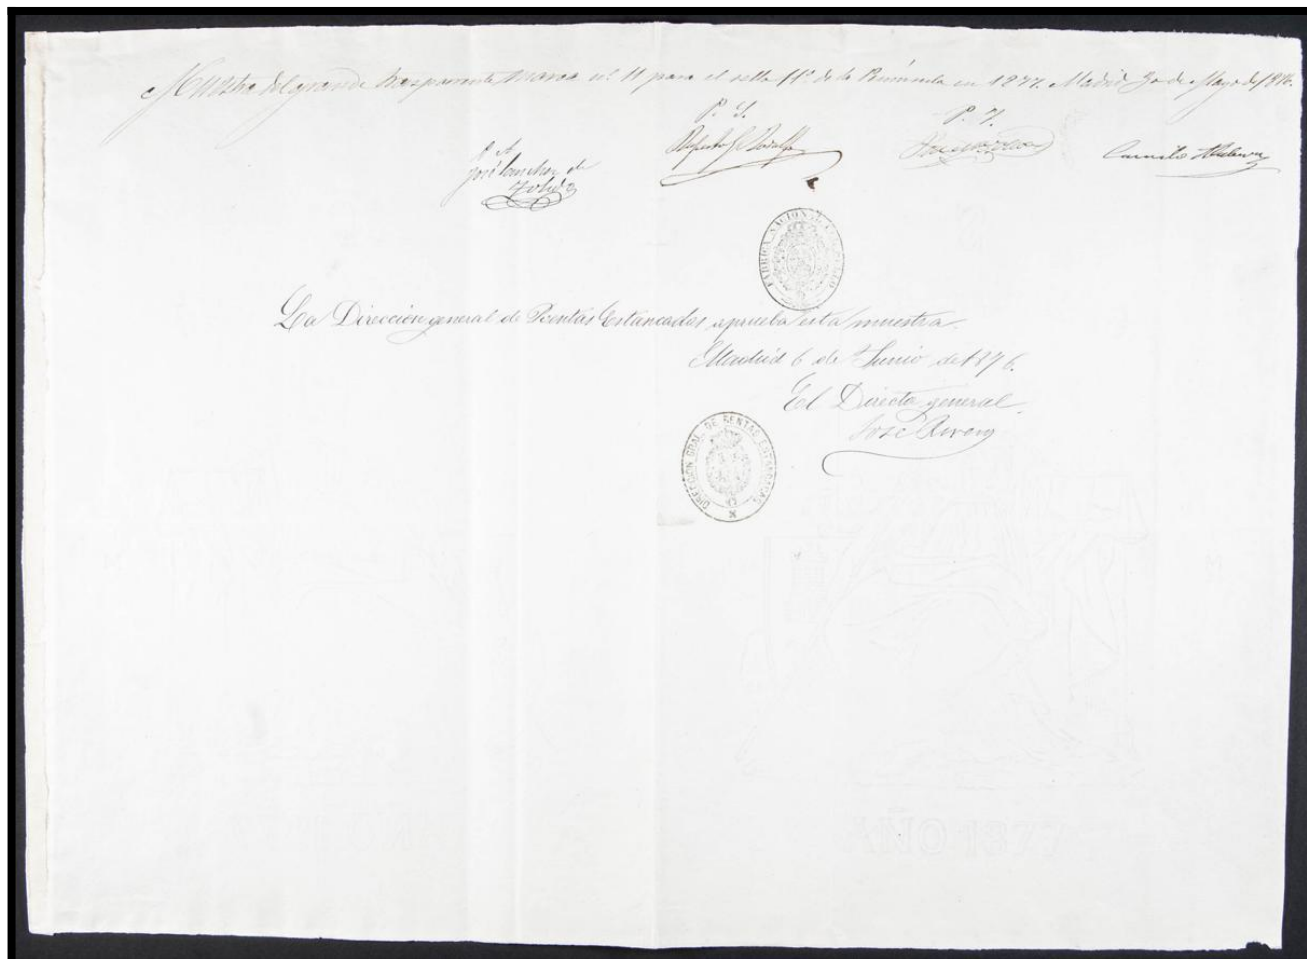 Muestra del grande trasparente marca nº 11 para el sello 11º de la Península en 1877. Madrid 30 de Mayo de 1876.
P. S.
P. Y.
P. A.
José Sanchez de
Toledo
FABRICA NACIONAL DEL SELLO
La Direccion general de Rentas Estancadas aprueba esta muestra.
Madrid 6 de Junio de 1876.
El Director general
José Rivero
DIRECCION GRAL. DE RENTAS ESTANCADAS
AÑO 1877